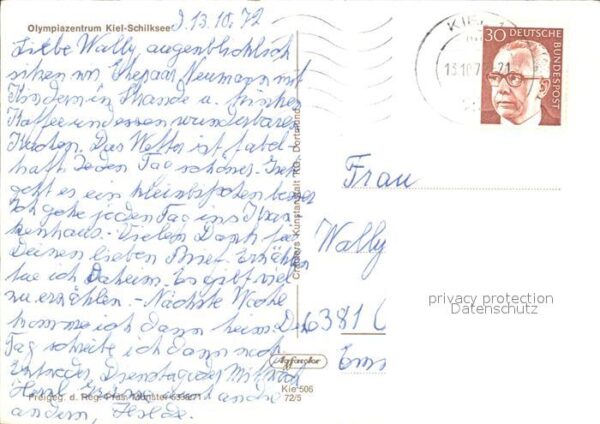 Olympiazentrum Kiel-Schilksee
d. 13.10.72
Liebe Wally, augenblicklich
sitzen wir Ehepaar Neumann mit
Kindern in Strande u. trinken
Kaffee und essen wunderbaren
Kuchen. Das Wetter ist fabel-
haft. Jeden Tag schöner.
geht es ein klein bißchen besser
Ich gehe jeden Tag ins Kran-
kenhaus. - Vielen Dank für
Deinen lieben Brief. Erzählen
tue ich Daheim. Es gibt viel
zu erzählen. - Nächste Woche
komme ich dann heim. Den
Tag schreibe ich dann noch
Entweder Dienstag oder Mittwoch
Herzl. Grüße und
andern, Hilde.
Freigeg. d. Reg. Präs. Münster 6338/71
Cramers Kunstanstalt KG. Dortmund
Agfacolor
Kie 506
72/5
KIEL 1
13.10.72-21
30 DEUTSCHE
BUNDESPOST
Frau
Wally
6381
Ems
privacy protection
Datenschutz